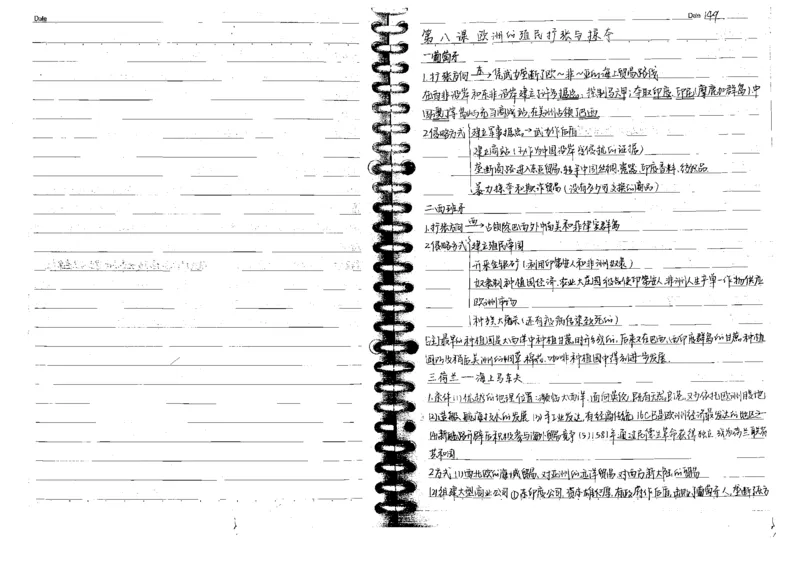 Date
Date 149
第八课 欧洲的殖民扩张与掠夺
一葡萄牙
1.扩张方向 东→凭武力垄断了欧~非~亚的海上贸易路线
在西非沿岸和东非沿岸建立了许多据点;控制马六甲;夺取印度、印尼(摩鹿和群岛)中
国澳门等 商站,在美洲占领了巴西
2.侵略方式 建立军事据点→武力作后盾
建立商站(了作为中国沿岸 的证据)
垄断商路进入东亚贸易,转手中国丝绸、瓷器、印度香料、纺织品
暴力掠夺和欺诈贸易(没有多少可交换的商品)
二西班牙
1.扩张方向 西→占领除巴西外中南美和菲律宾群岛
2.侵略方式 建立殖民帝国
开采金银矿(利用印第安人和非洲奴隶)
奴隶制种植园经济,农业大庄园 使印第安人、非洲人生产单一作物供应
欧洲市场
种族大屠杀(还有死于传染致死的)
[注]最早的种植园是大西洋中种植甘蔗时开始的,后来又在巴西、西印度群岛的甘蔗种植
园以及稍后美洲的烟草、棉花、咖啡种植园中得到进一步发展
三荷兰 — 海上马车夫
1.条件 (1)优越的地理位置:濒临大西洋,面向英俄, 又可依托欧洲腹地
(2)造船、航海技术的发展 (3)手工业发达,有经商传统,16C已是欧洲经济最发达的地区之一
(4)新航路开辟后积极参与海外贸易竞争 (5)1581年通过尼德兰革命获得独立,成为荷兰联省
共和国
2.方式 (1)南北欧的海域贸易、对亚洲的远洋贸易、对南方新大陆的贸易
(2)组建大型商业公司 ①东印度公司,资本雄厚,有政府作后盾,击败了葡萄牙人,垄断东方